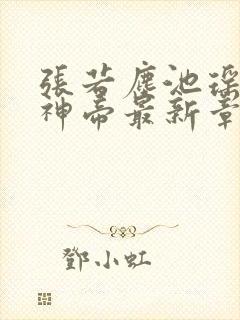 張若塵池瑤
神帝最新章
鄧小虹